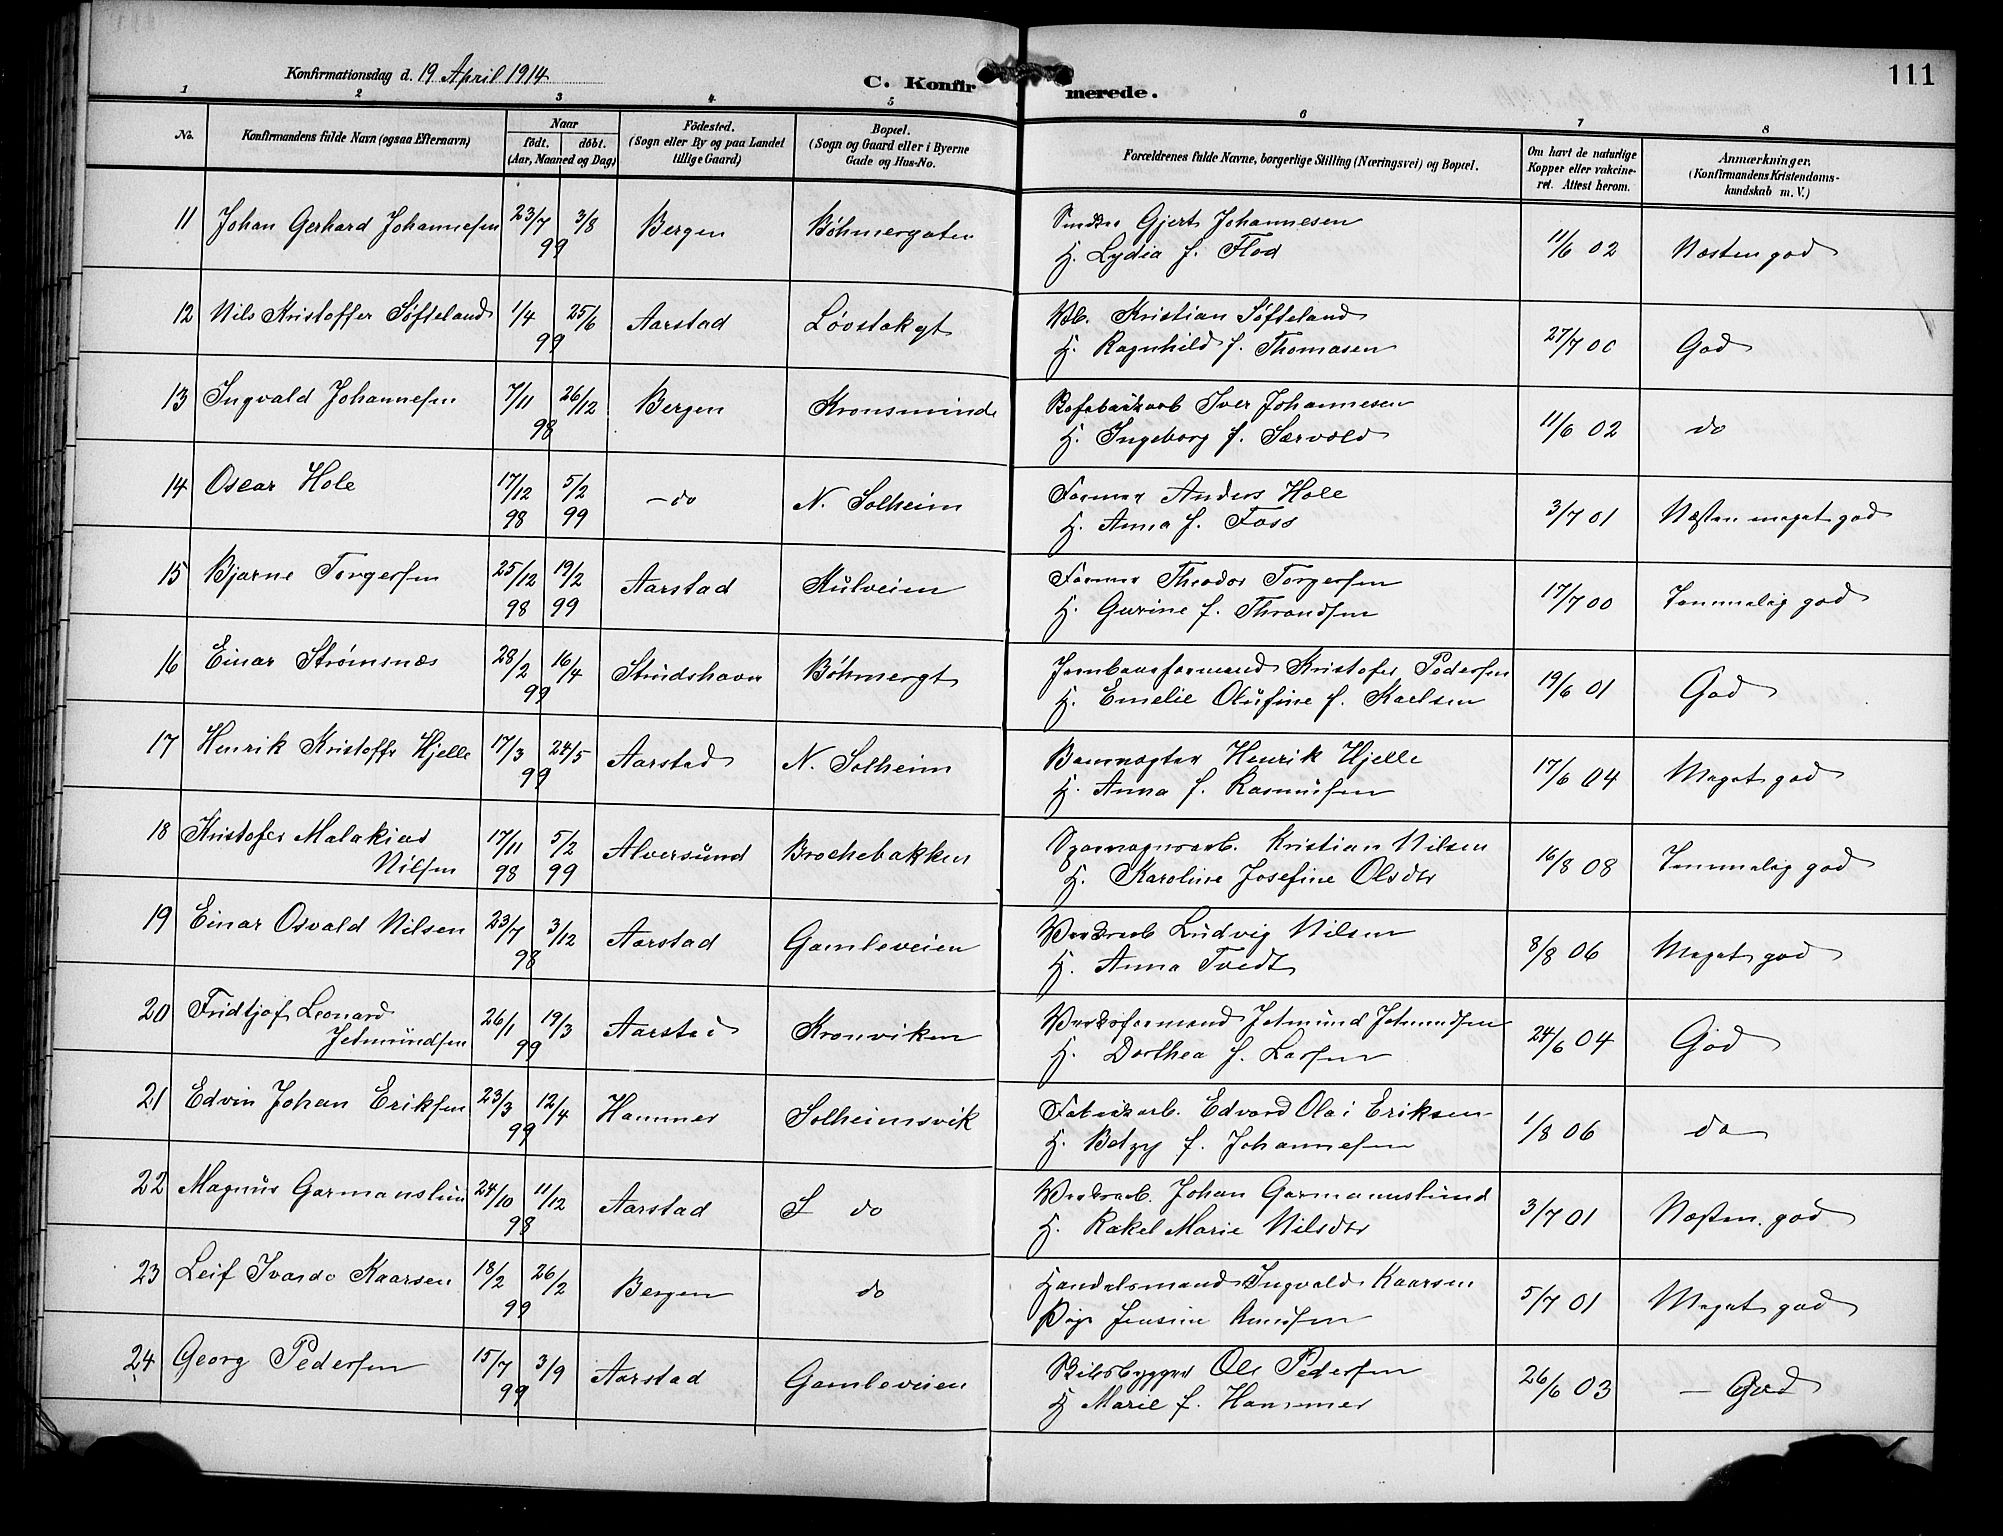 111
Konfirmationsdag d. 19 April 1914
C. Konfirmerede.
1 2 3 4 5 6 7 8
No. Konfirmandens fulde Navn (ogsaa Efternavn) Naar født. døbt. (Aar, Maaned og Dag) Fødested. (Sogn eller By og paa Landet tillige Gaard) Bopæl. (Sogn og Gaard eller i Byerne Gade og Hus-No. Forældrenes fulde Navne, borgerlige Stilling (Næringsvei) og Bopæl. Om havt de naturlige Kopper eller vakcineret. Attest herom. Anmærkninger. (Konfirmandens Kristendomskundskab m. V.)
11 Johan Gerhard Johannesen 23/7 3/8 99 Bergen Böhmergaten Gjert Johannesen
H. Lydia f. Flod 11/6 02 Næsten god
12 Nils Kristoffer Søfteland 1/4 25/6 99 Aarstad Løvstakgt Kristian Søfteland
H. Ragnhild f. Thomasen 27/7 00 God
13 Ingvald Johannesen 7/11 26/12 98 Bergen Kronsminde Iver Johannesen
H. Ingeborg f. Særvold 11/6 02 do
14 Oscar Hole 17/12 98 5/2 99 - do N. Solheim Former Anders Hole
H. Anna f. Foss 3/7 01 Næsten meget god
15 Bjarne Torgersen 25/12 98 19/2 99 Aarstad Hulveien Former Theodor Torgersen
H. Gurine f. Throndsen 17/7 00 Temmelig god
16 Einar Strømsnæs 28/2 16/4 99 Strudshavn Böhmergt Jernbaneformand Kristofer Pedersen
H. Emelie Olufine f. Karlsen 19/6 01 God
17 Henrik Kristoffer Hjelle 17/3 24/5 99 Aarstad N. Solheim Banevogter Henrik Hjelle
H. Anna f. Rasmussen 17/6 04 Meget god
18 Kristofer Malakias
Nilsen 17/11 98 5/2 99 Alversund Brochebakken Sporvognsarb. Kristian Nilsen
H. Karoline Josefine Olsdtr 16/8 08 Temmelig god
19 Einar Osvald Nilsen 23/7 3/12 98 Aarstad Gamleveien Verksarb Ludvig Nilsen
H. Anna Tvedt 8/8 06 Meget god
20 Fridtjof Leonard
Jetmundsen 26/1 19/3 99 Aarstad Kronviken Verksformand Jetmund Jetmundsen
H. Dorthea f. Larsen 24/6 04 God
21 Edvin Johan Eriksen 23/3 12/4 99 Hammer Solheimsvik Fabrikarb. Edvard Olai Eriksen
H. Betzy f. Johannesen 1/8 06 do
22 Magnus Garmanslund 24/10 11/12 98 Aarstad S do Verksarb. Johan Garmannslund
H. Rakel Marie Nilsdtr 3/7 01 Næsten god
23 Leif Ivardo Kaarsen 18/2 26/2 99 Bergen do Handelsmand Ingvald Kaarsen
Pige Jensine Knudsen 5/7 01 Meget god
24 Georg Pedersen 15/7 3/9 99 Aarstad Gamleveien Skibsbygger Ole Pedersen
H Marie f. Hammer 26/6 03 - God